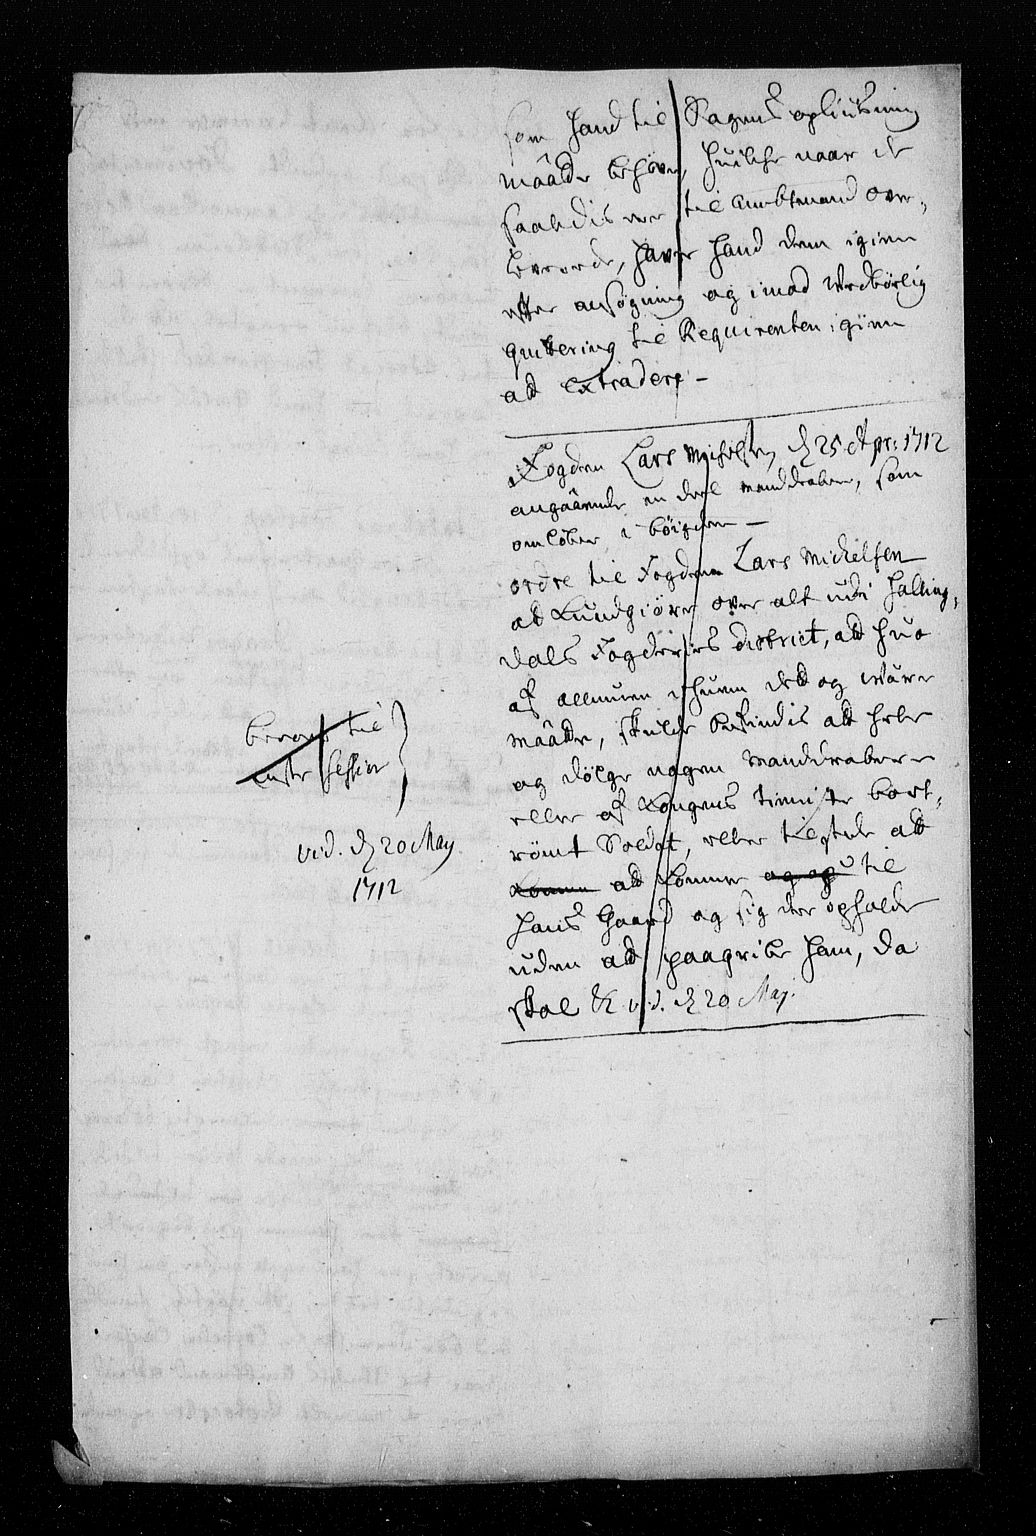 som hand til Sagens opliusning
maatte behøve, huilche naar de
saaledis er til Ambtmand over-
leverede, haver hand dem igien
efter ansøgning og imod wedbørlig
quitering til Requirenten igien
att extradere -
Fogden Lars Michelsen, d 25 Apr: 1712
angaaende en deel manddrabere, som
omløber i bøigden -
ordre til Fogden Lars Michelsen
at Kundgiøre over alt udi Halling-
dals Fogderies district, att huo
af almuen i huem det og være
maatte, skulde befindis att hele
og dølge nogen manddrabere
eller af Kongens tieniste bort-
römt Soldat, eller tilstede att
komme att kommer og og til
hans Gaard og sig der opholde
uden att paagribe ham, da
skal &c vid. d 20 Maj.
beroer til
Session
vid. d 20 May.
1712